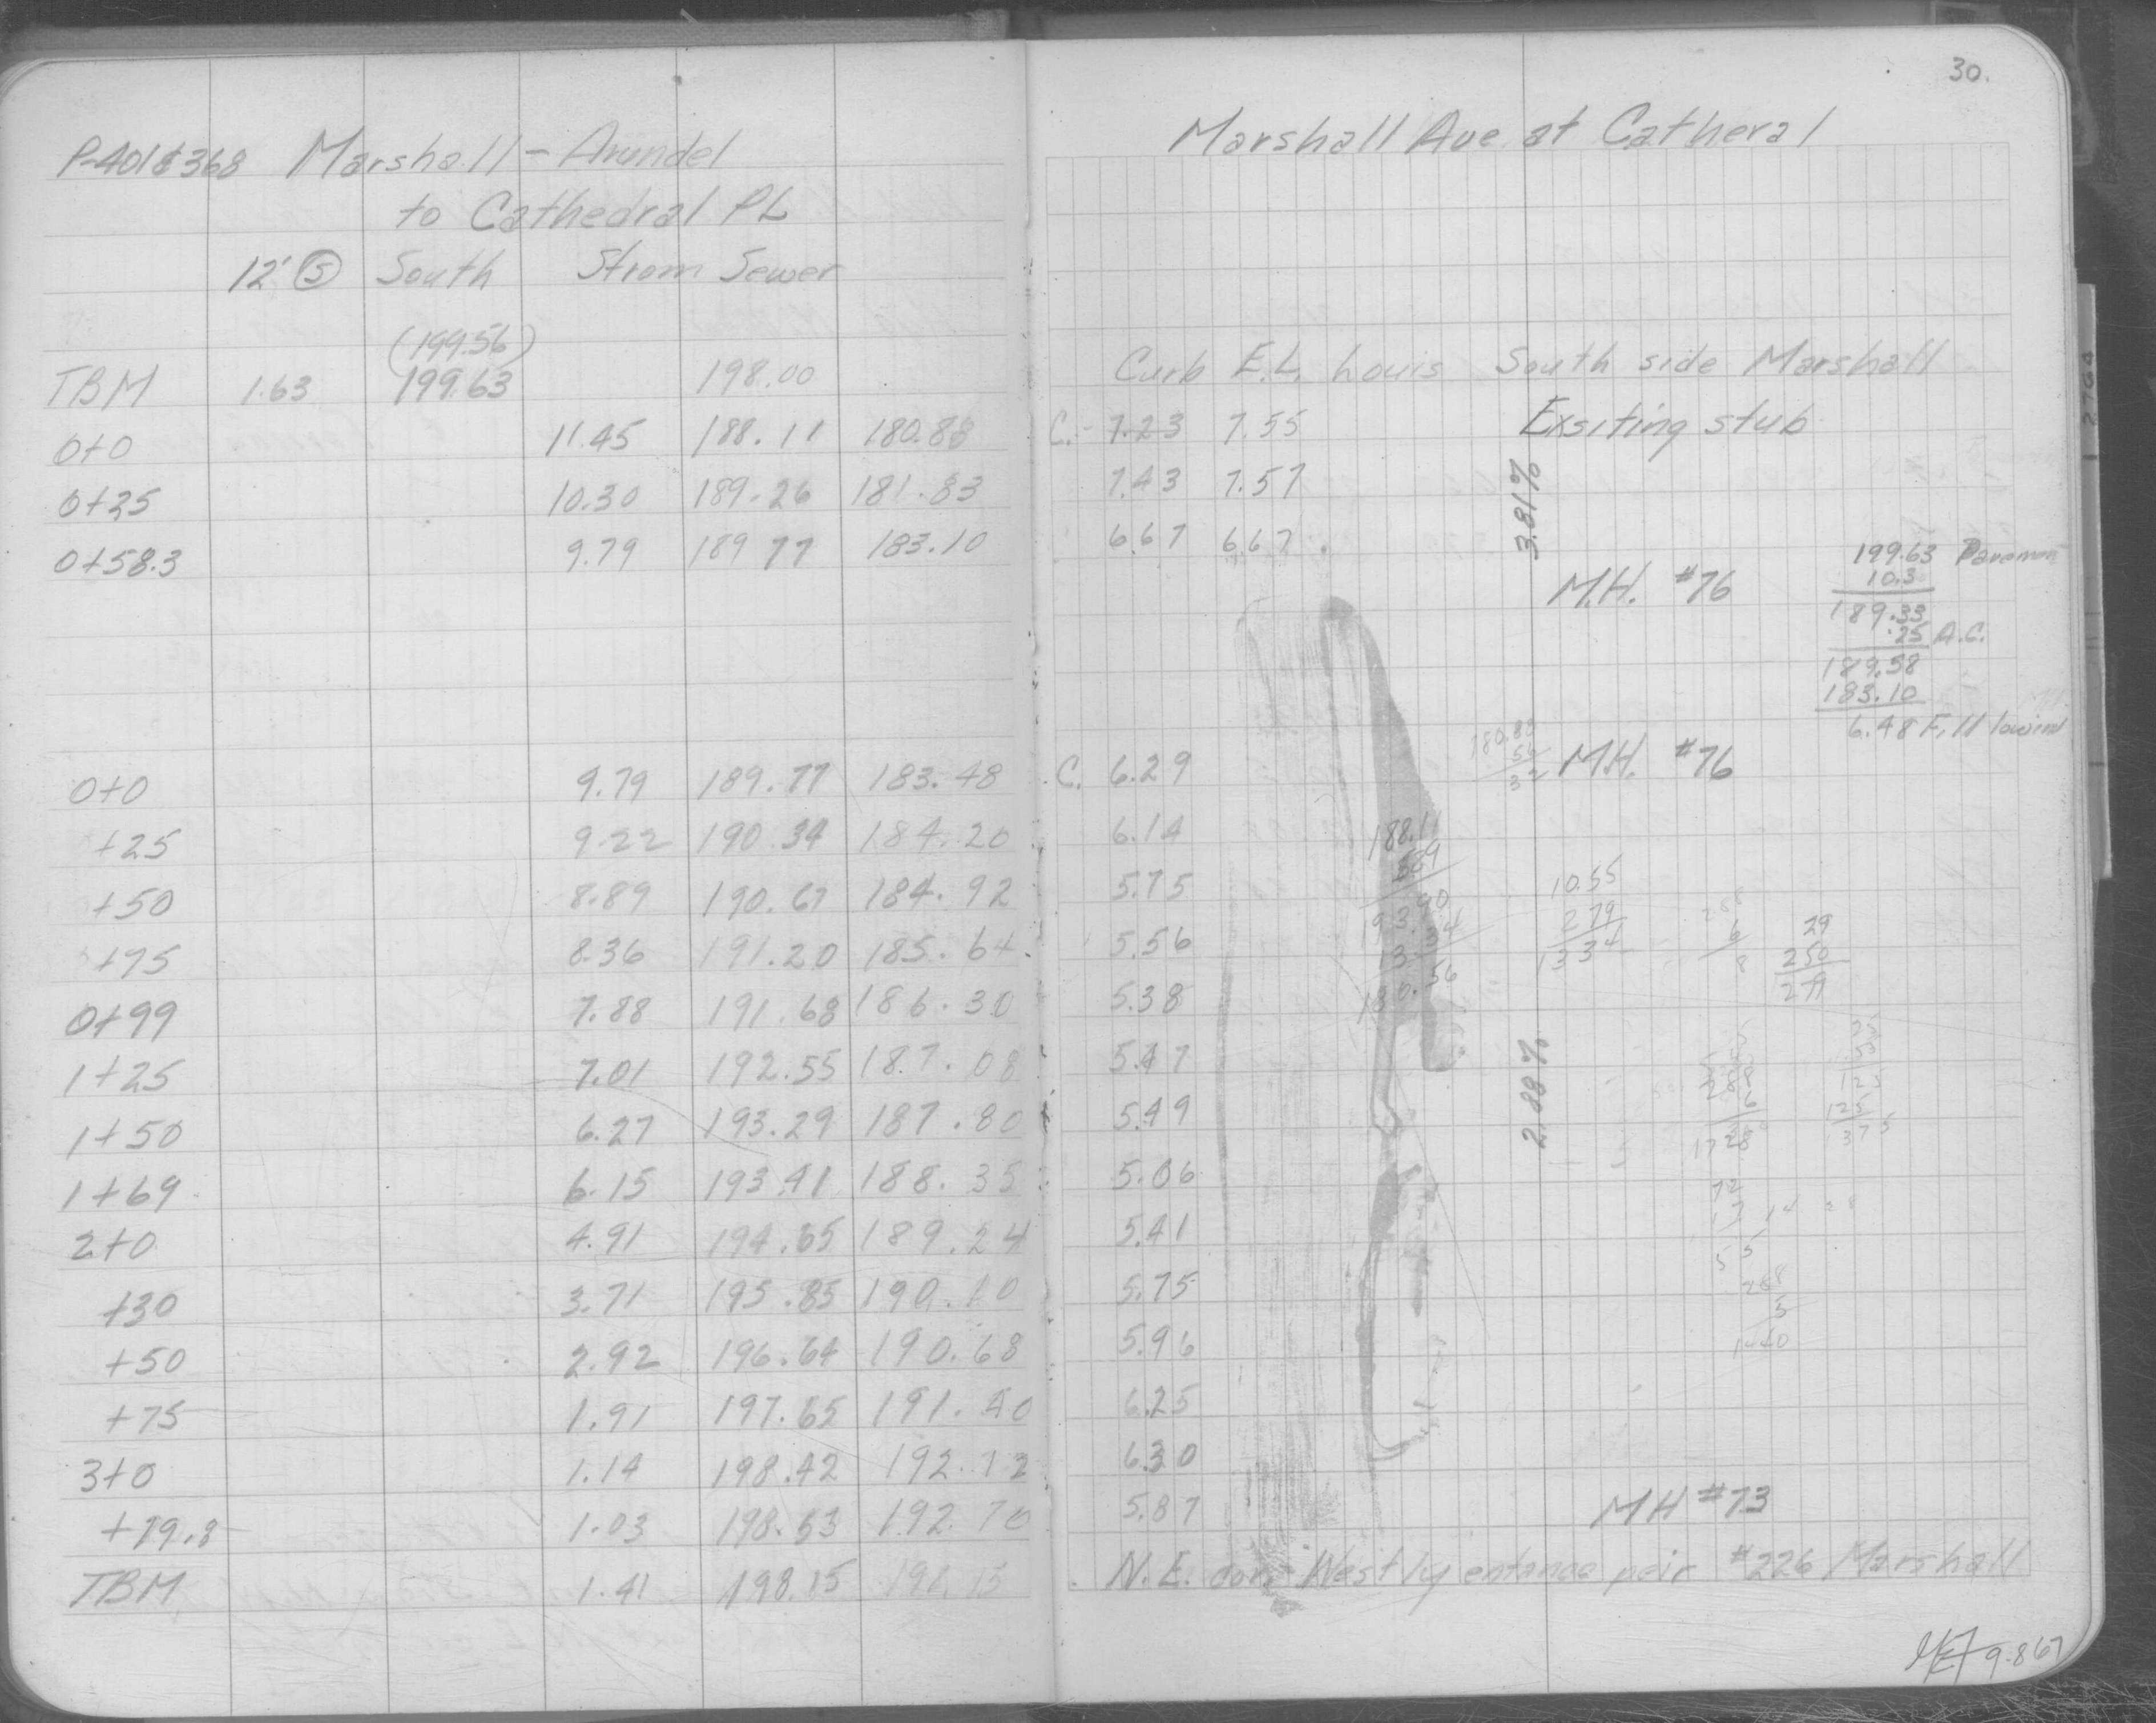 30.
P-401&368 Marshall - Arundel
to Cathedral PL
12' S South Strom Sewer
(199.56)
TBM 1.63 199.63 198.00
0+0 11.45 188.11 180.88
0+25 10.30 189.26 181.83
0+58.3 9.79 189.77 183.10
0+0 9.79 189.77 183.48
+25 9.22 190.34 184.20
+50 8.89 190.67 184.92
+75 8.36 191.20 185.64
0+99 7.88 191.68 186.30
1+25 7.01 192.55 187.08
1+50 6.27 193.29 187.80
1+69 6.15 193.41 188.35
2+0 4.91 194.65 189.24
+30 3.71 195.85 190.10
+50 2.92 196.64 190.68
+75 1.91 197.65 191.40
3+0 1.14 198.42 192.12
+19.8 1.03 198.53 192.70
TBM 1.41 198.15 198.15
Marshall Ave. at Catheral
Curb E.L. Louis South side Marshall
C.- 7.23 7.55 Exsiting stub
7.43 7.57
6.67 6.67
3.81%
M.H. #76
199.63
10.3
189.33
.25 A.C.
189.58
183.10
6.48
C. 6.29 M.H. #76
6.14
5.75
5.56
5.38
5.47
5.49
5.06
5.41
5.75
5.96
6.25
6.30
5.87 MH #73
188.11
10.55
279
1334
29
250
279
2.88%
288
6
1728
125
125
375
72
17
55
288
5
1440
N.E. cor. Westly entance peir #226 Marshall
9-8 67